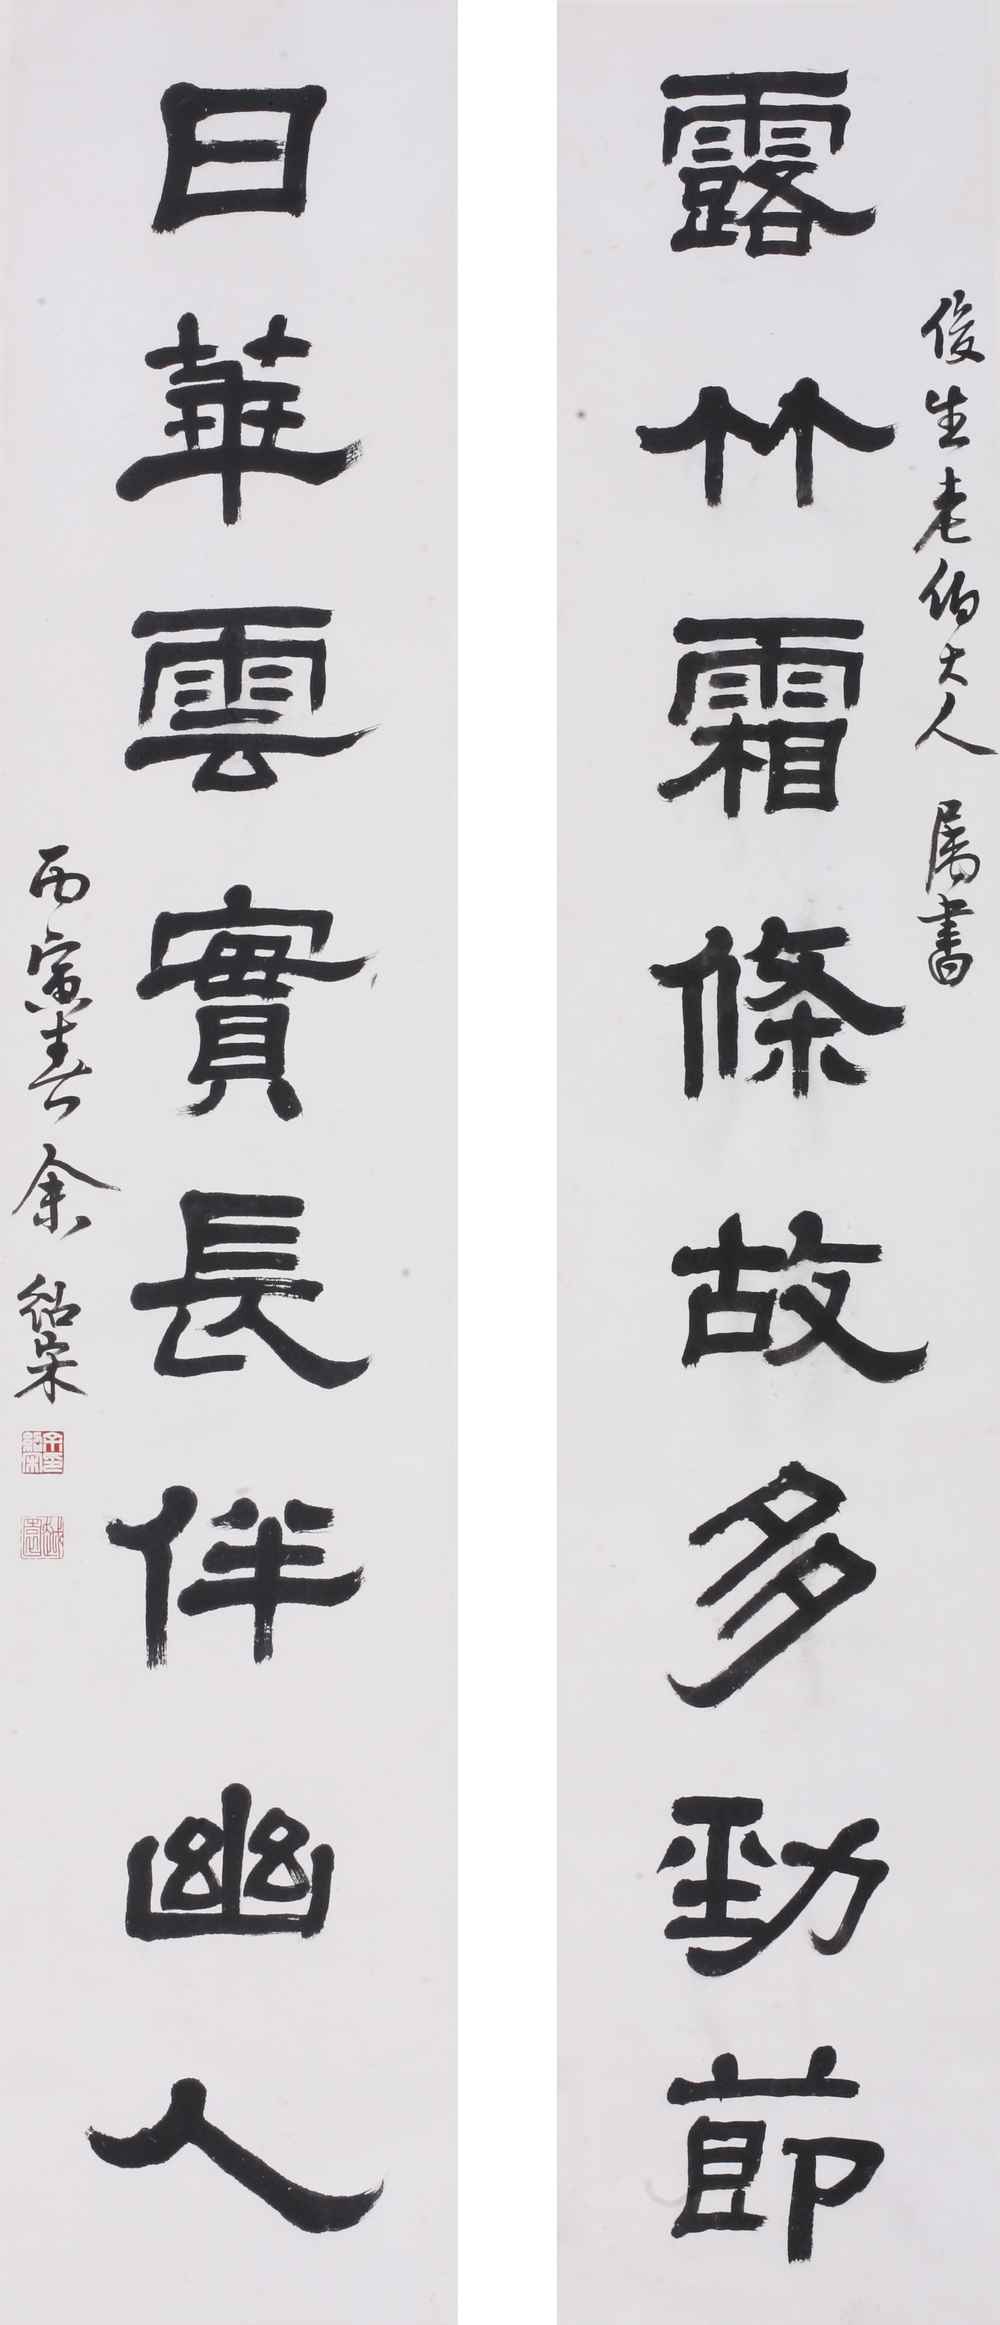 俊生老伯大人 属書
露竹霜條故多勁節
日華雲實長伴幽人
丙寅春余紹宋